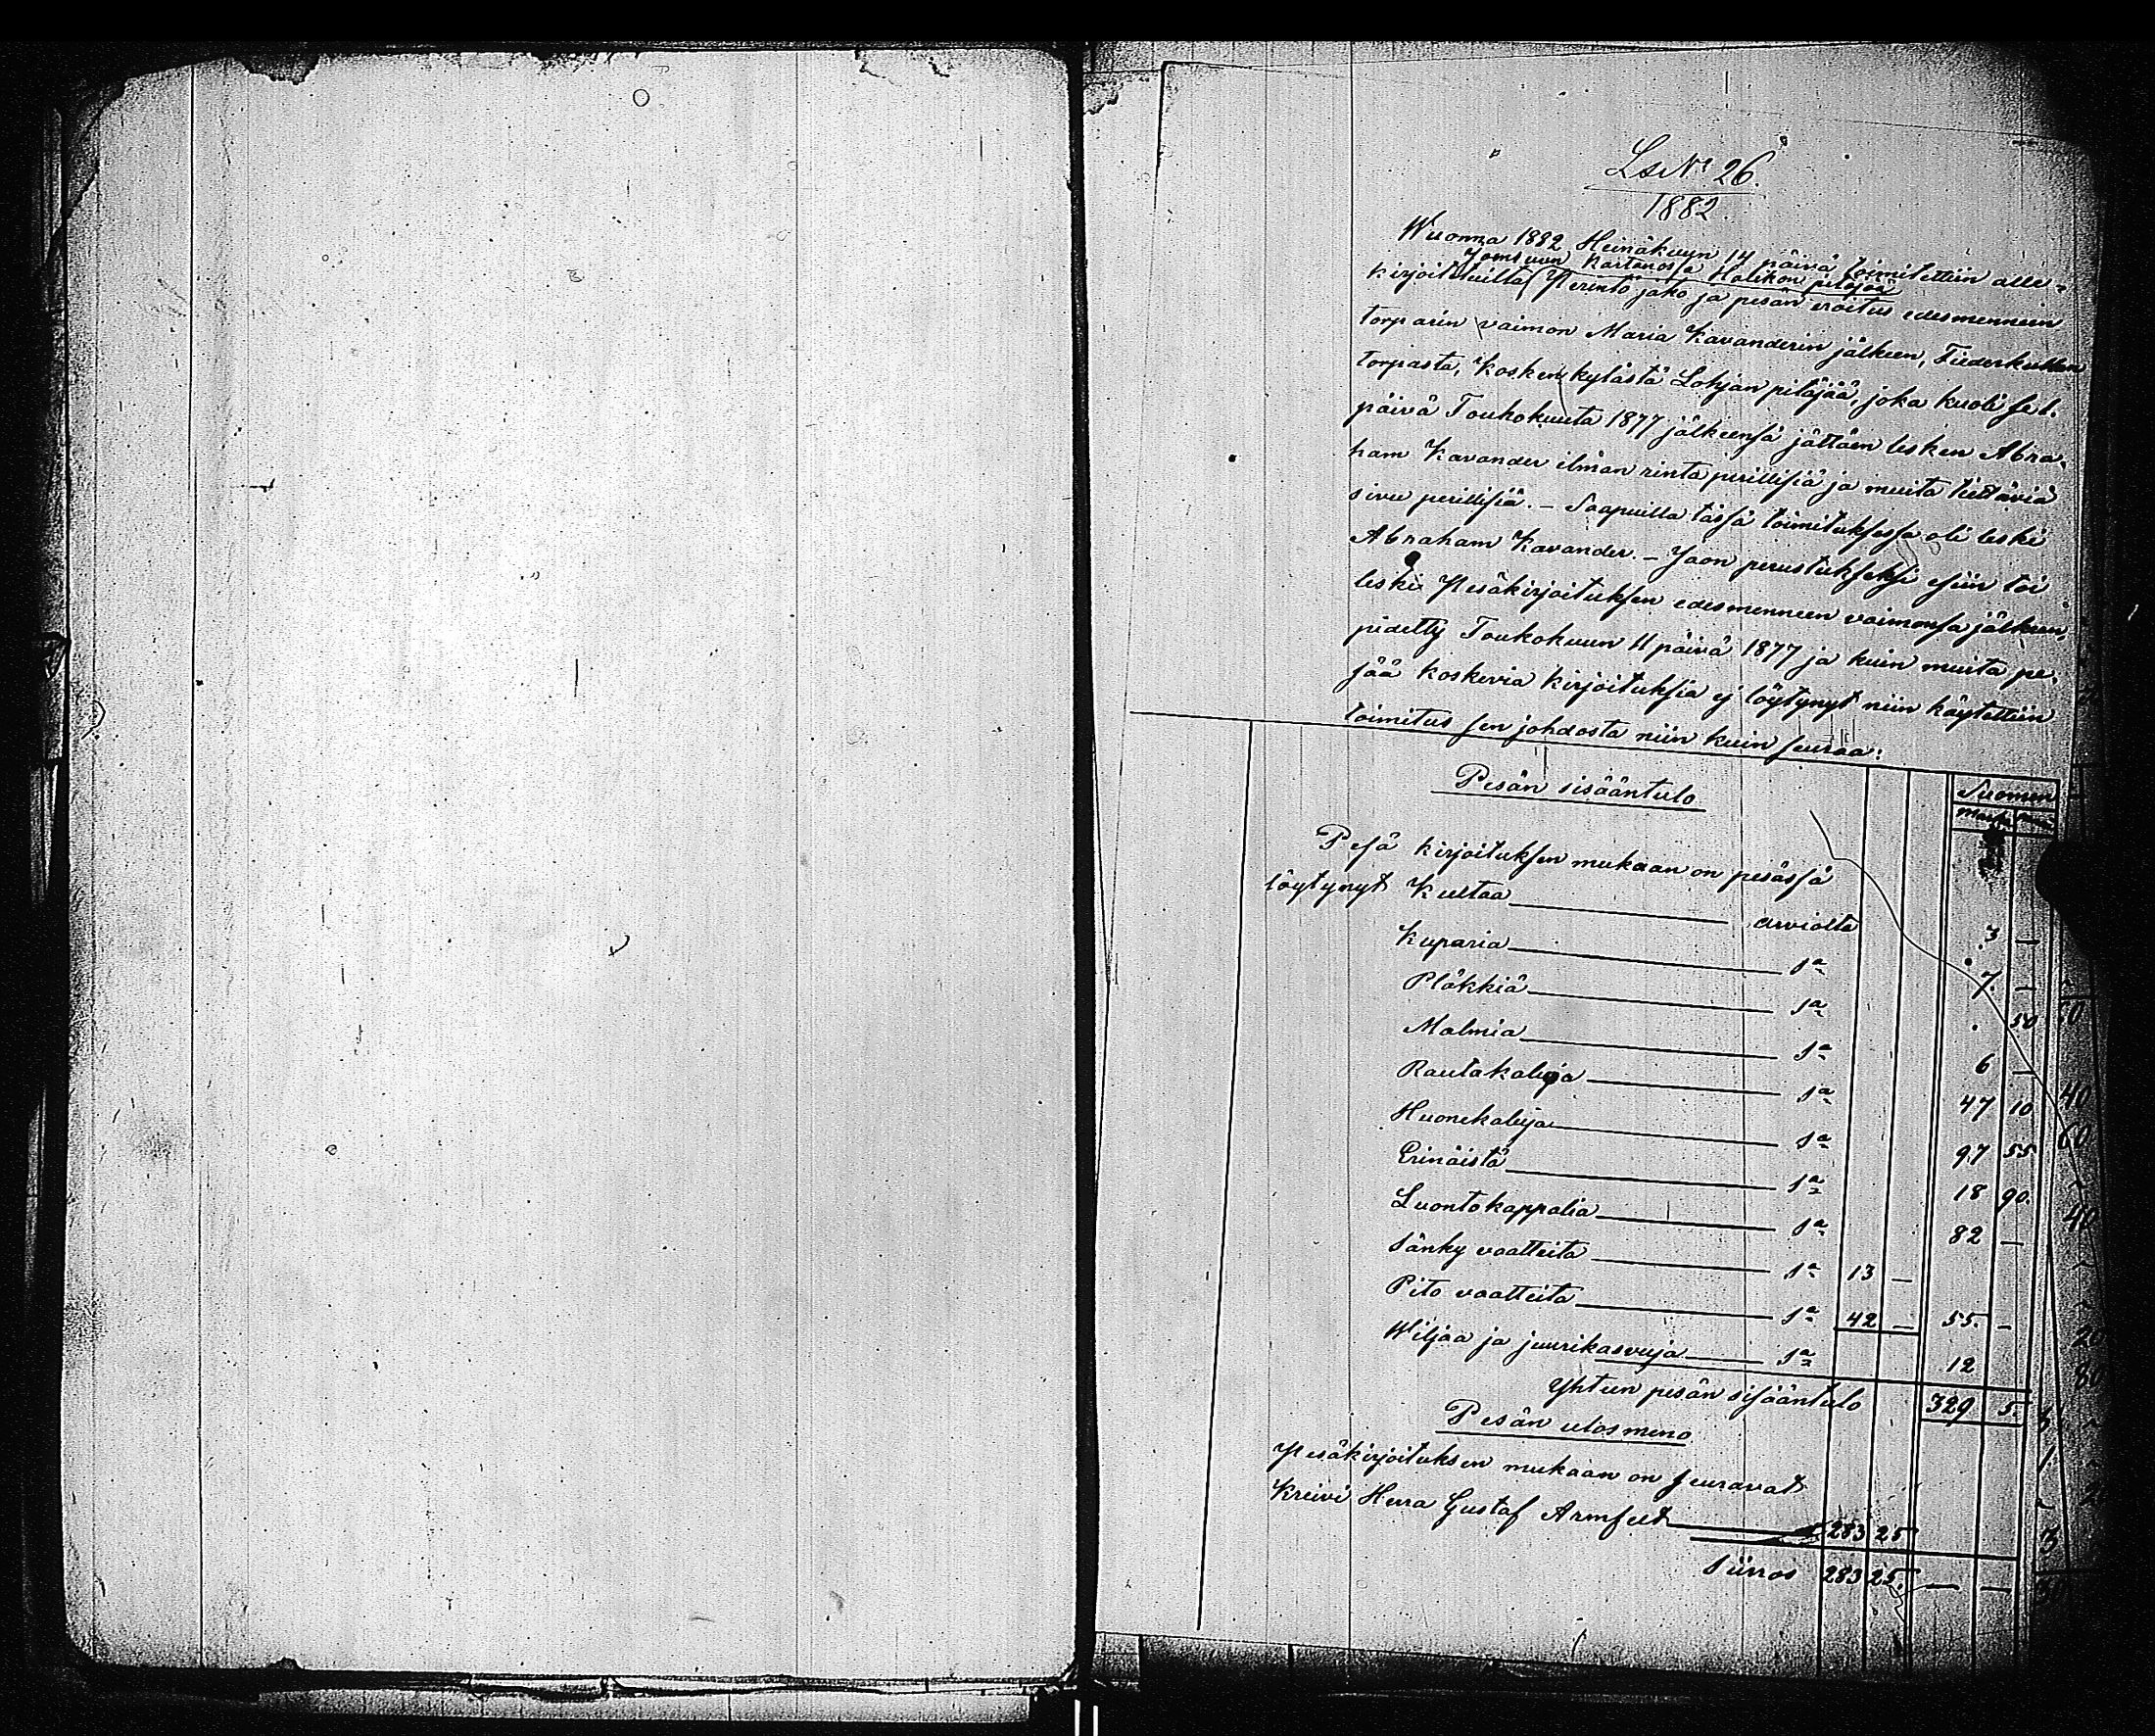 Ls No 26.
1882
Wuonna 1882 Heinäkuun 14 päivä toimitettiin alle-
Joensuun Kartanossa Halikon pitäjää
kirjoitetuilta Perinto jako ja pesän eroitus edesmenneen
torparin vaimon Maria Kavanderin jälkeen,
torpasta, Kosken kylästä Lohjan pitäjää, joka kuoli se 1.
päivä Touhokuuta 1877 jälkeensä jättäen lesken Abra-
ham Kavander ilman rinta perillisiä ja muita tiettäviä
sivu perillisiä. - Saapuilla tässä toimituksessa oli leski
Abraham Kavander. - Jaon perustukseksi esiin toi
leski Pesäkirjoituksen edesmenneen vaimonsa jälkeen,
pidetty Toukokuun 11 päivä 1877 ja kuin muita pe-
sää koskevia kirjoituksia ej löytynyt niin käytettiin
toimitus sen johdosta niin kuin seuraa:
Pesän sisääntulo
Suomen
Pesä kirjoituksen mukaan on pesässä
löytynyt Kultaa arviolta 3 —
Kuparia sa 7. —
Pläkkiä sa . 50
Malmia sa 6 —
Rautakaluja sa 47 10
Huonekaluja sa 97 55
Erinäistä sa 18 90.
Luontokappalia sa 82 —
Sänky vaatteita sa 13 —
Pito vaatteita sa 42 — 55. —
Wiljaa ja juurikasvuja sa 12
Yhteen pesän sisääntulo 329 5.
Pesän ulosmeno
Pesäkirjoituksen mukaan on seuravat
Kreivi Herra Gustaf Armfelt 283 25
Siirros 283 25. — —